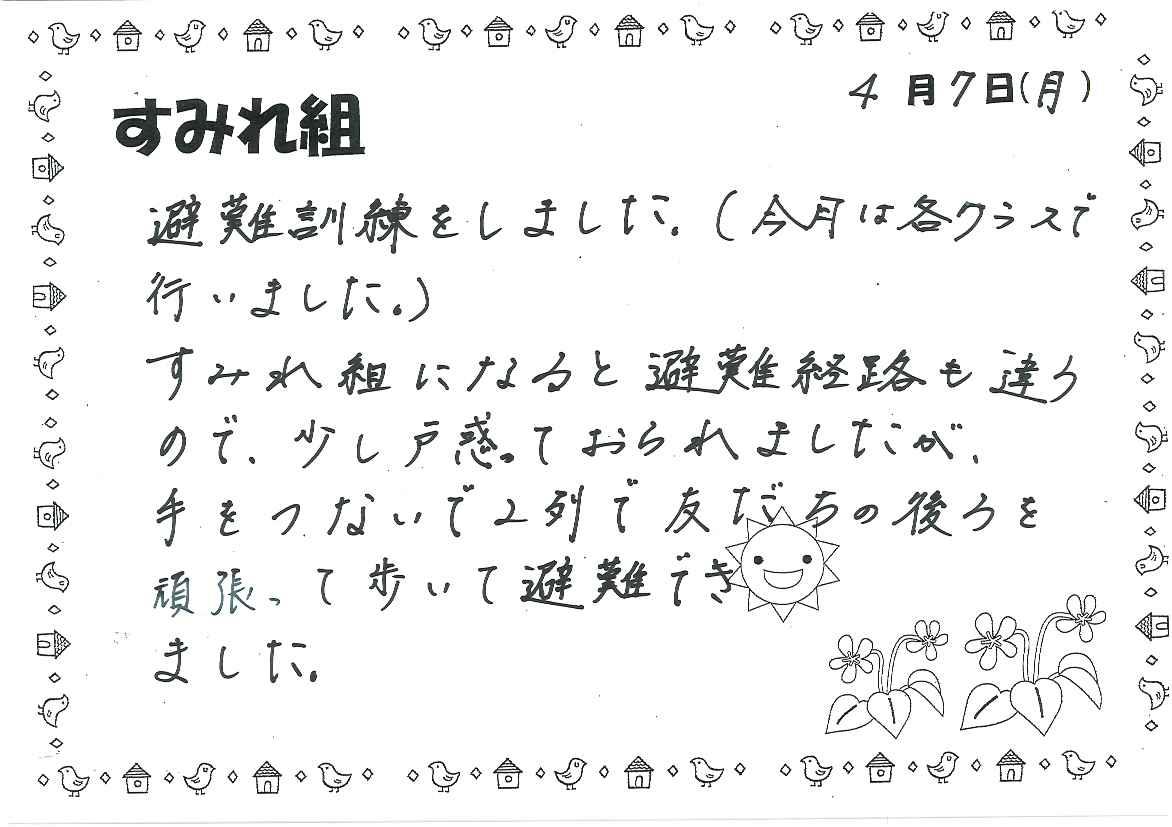 4月7日(月)
すみれ組
避難訓練をしました。(今月は各クラスで
行いました。)
すみれ組になると避難経路も違う
ので、少し戸惑っておられましたが、
手をつないで2列で友だちの後ろを
頑張って歩いて避難でき
ました。